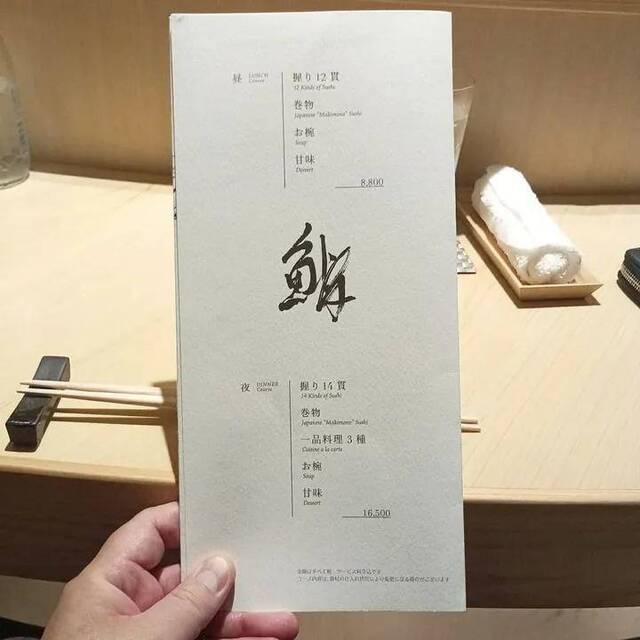 昼 LUNCH Course
握り12貫
12 Kinds of Sushi
巻物
Japanese "Makimono" Sushi
お椀
Soup
甘味
Dessert
8,800
鮨
夜 DINNER Course
握り14貫
14 Kinds of Sushi
巻物
Japanese "Makimono" Sushi
一品料理3種
Cuisine a la carte
お椀
Soup
甘味
Dessert
16,500
金額はすべて税・サービス料込です
コース内容は、食材の仕入れ状況により変更になる場合がございます